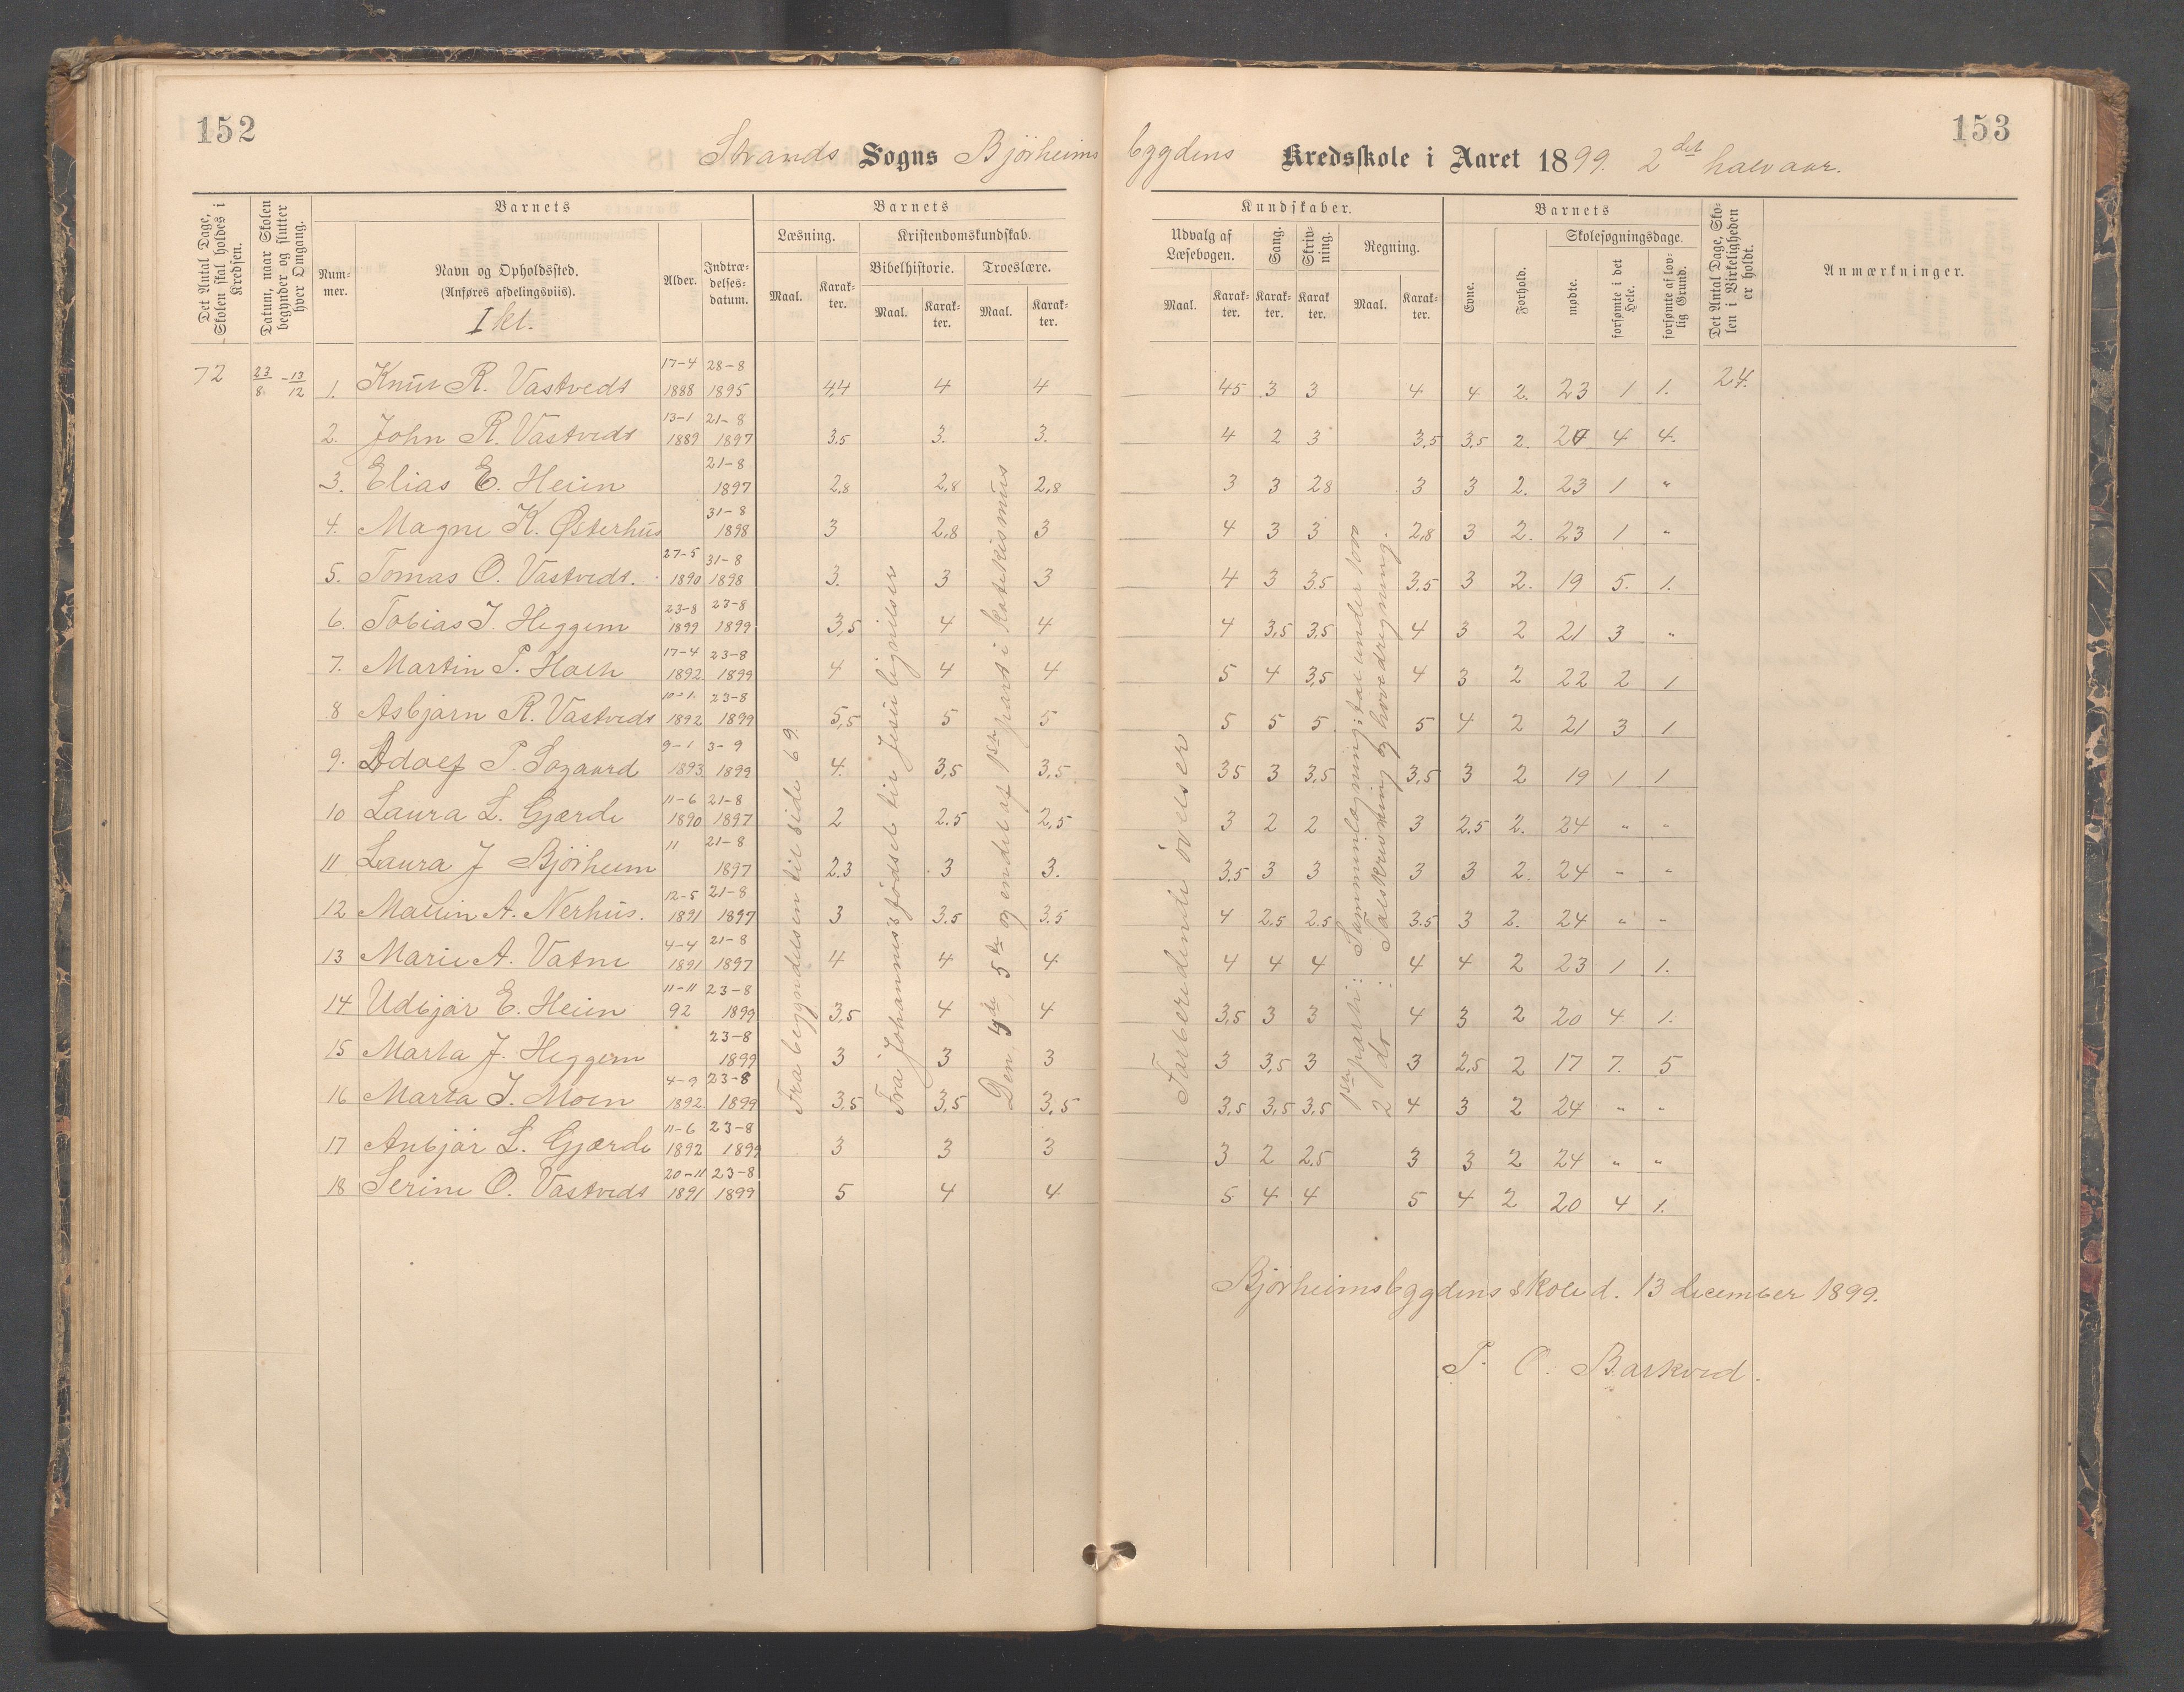 152
153
Strands Sogns Bjørheims bygdens Kredsskole i Aaret 1899. 2det halvaar.
Det Antal Dage, Skolen skal holdes i Kredsen.
Datum, naar Skolen begynder og slutter hver Omgang.
Barnets
Nummer.
Navn og Opholdssted. (Anføres afdelingsviis).
I kl.
Alder.
Indtrædelsesdatum.
Barnets
Læsning.
Maal.
Karakter.
Kristendomskundskab.
Bibelhistorie.
Maal.
Karakter.
Troeslære.
Maal.
Karakter.
Kundskaber.
Udvalg af Læsebogen.
Maal.
Karakter.
Sang.
Karakter.
Skrivning.
Karakter.
Regning.
Maal.
Karakter.
Barnets
Evne.
Forhold.
Skolesøgningsdage.
mødte.
forsømte i det Hele.
forsømte af lovlig Grund.
Det Antal Dage, Skolen i Virkeligheden er holdt.
Anmærkninger.
72 23/8 - 13/12 1. Knut R. Vastvedt 17-4 1888 28-8 1895 4,4 4 4 45 3 3 4 4 2. 23 1 1. 24.
2. John R. Vastvedt 13-1 1889 21-8 1897 3.5 3. 3. 4 2 3 3,5 3,5 2. 20 4 4.
3. Elias E. Heien 21-8 1897 2,8 2,8 2,8 3 3 28 3 3 2. 23 1 "
4. Magne K. Østerhus 31-8 1898 3 2,8 3 4 3 3 2,8 3 2. 23 1 "
5. Tomas O. Vastvedt. 27-5 1890 31-8 1898 3. 3 3 4 3 3.5 3,5 3 2. 19 5. 1.
6. Tobias J. Heggem 23-8 1899 23-8 1899 3,5 4 4 4 3,5 3,5 4 3 2 21 3 "
7. Martin P. Holh 17-4 1892 23-8 1899 4 4 4 5 4 3,5 4 3 2 22 2 1
8 Asbjørn R. Vastvedt 10-1. 1892 23-8 1899 5,5 5 5 5 5 5 5 4 2 21 3 1
9. Adolf P. Sogaard 9-1 1893 3-9 1899 4. 3,5 3,5 35 3 3,5 3,5 3 2 19 1 1
10 Laura L. Gjærde 11-6 1890 21-8 1897 2 2.5 2,5 3 2 2 3 2.5 2. 24 " "
11 Laura J Bjørheim 11 21-8 1897 2.3 3 3. 3.5 3 3 3 3 2. 24 " "
12 Mallin A. Nerhus. 12-5 1891 21-8 1897 3 3.5 3.5 4 2.5 2.5 3.5 3 2. 24 " "
13 Marie A. Vatne 4-4 1891 21-8 1897 4 4 4 4 4 4 4 4 2 23 1 1.
14 Udbjør E. Heien 11-11 92 23-8 1899 3,5 4 4 3,5 3 3 4 3 2 20 4 1.
15 Marta J. Heggem 23-8 1899 3 3 3 3 3,5 3 3 2,5 2 17 7. 5
16 Marta J. Moen 4-9 1892 23-8 1899 3,5 3,5 3,5 3,5 3,5 3,5 4 3 2 24 " "
17 Anbjør L. Gjærde 11-6 1892 23-8 1899 3 3 3 3 2 2,5 3 3 2 24 " "
18 Serine O. Vastvedt 20-11 1891 23-8 1899 5 4 4 5 4 4 5 4 2 20 4 1.
Fra begyndelsen til side 69.
Fra Johannes's fødsel til Jesu lignelser
Den 4de, 5te og endel af 1ste part i katekismus
Forberedende øvelser
1ste parti: Sammenlægning; tal under 1000
2 do : Talskrivning og hovedregning.
Bjørheimsbygdens skole d. 13 december 1899.
P. O. Barkved.